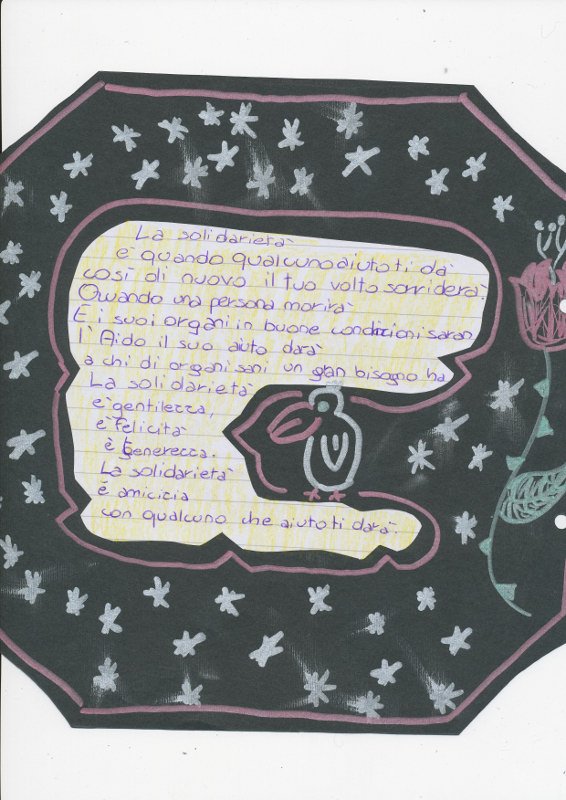 La solidarietà
è quando qualcuno aiuto ti dà
così di nuovo il tuo volto sorriderà.
Quando una persona morirà
E i suoi organi in buone condizioni saran
l'Aido il suo aiuto darà
a chi di organi sani un gran bisogno ha
La solidarietà
è gentilezza,
è felicità
è tenerezza.
La solidarietà
è amicizia
con qualcuno che aiuto ti darà.